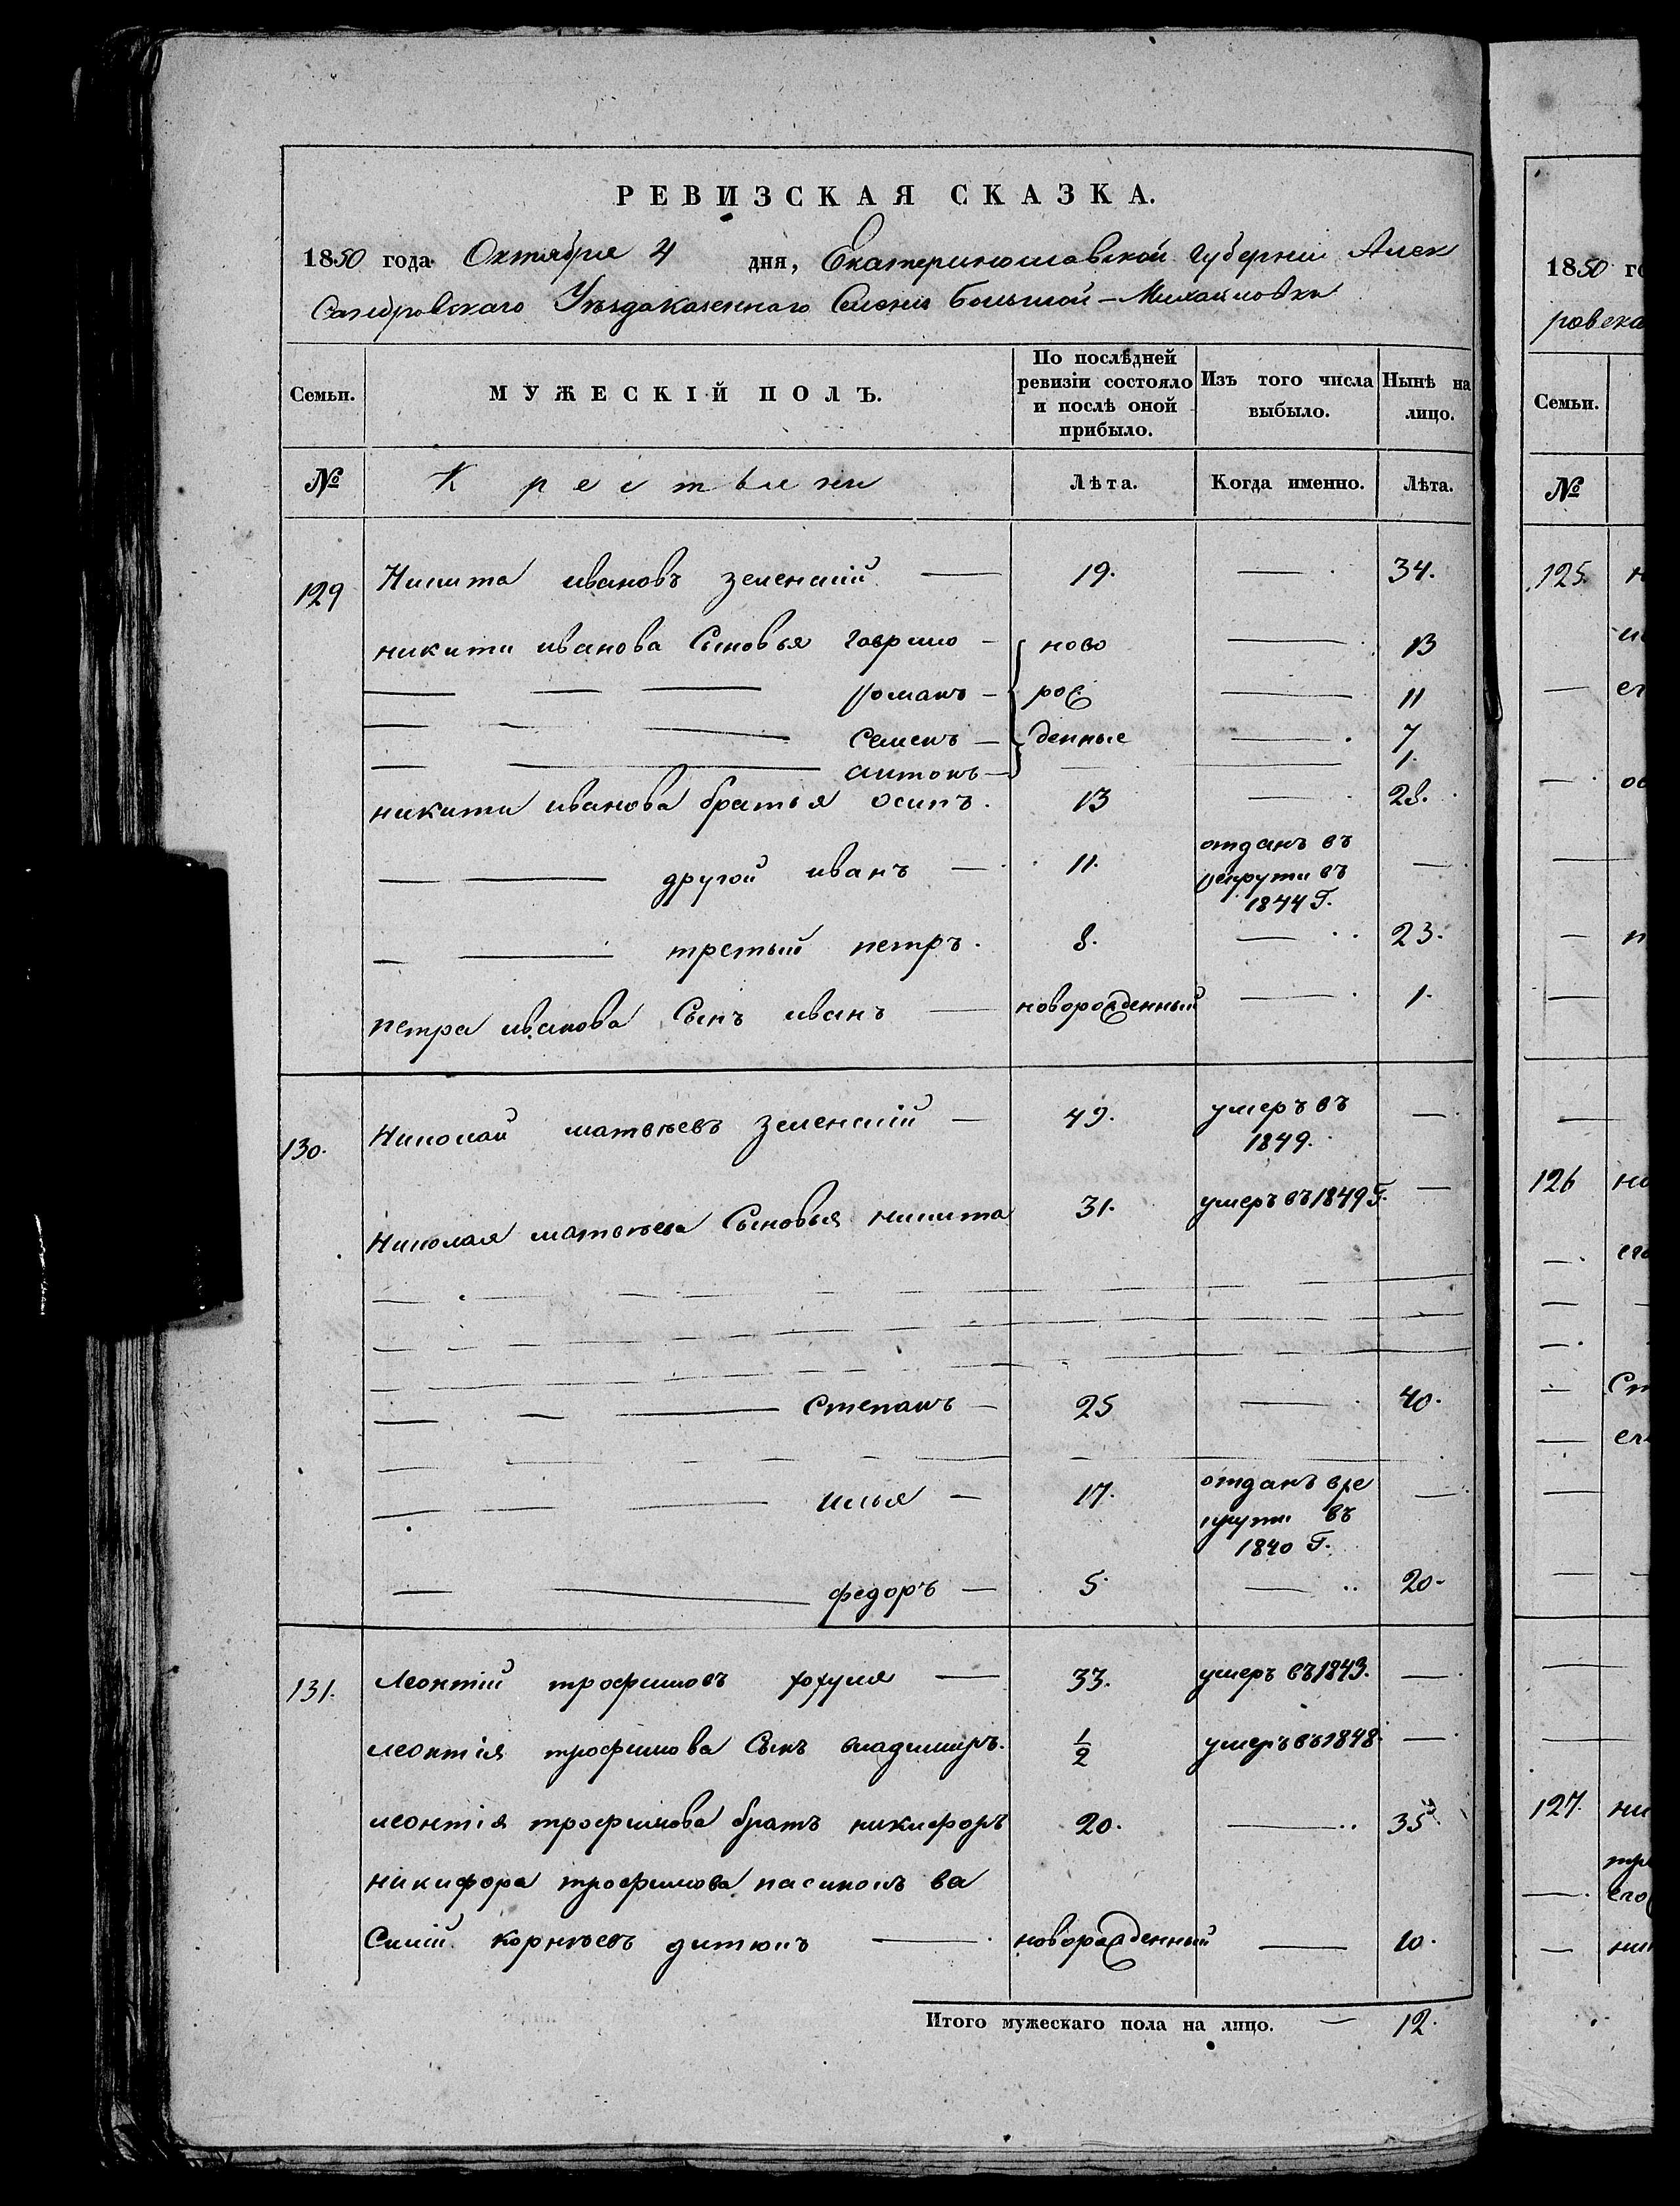 РЕВИЗСКАЯ СКАЗКА.
1850 года Октября 4 дня, Екатеринославской Губернии Алек
сандровского Уезда казенного Селения Большой-Михайловки
Семьи. МУЖЕСКІЙ ПОЛЪ. По послѣдней ревизіи состояло и послѣ оной прибыло. Изъ того числа выбыло. Нынѣ на лицо.
№ Крестьяни Лѣта. Когда именно. Лѣта.
129 Никита ивановъ зеленскій — 19. — 34.
никити иванова Сыновья гаврило — ново — 13
романъ — рож — 11
Семенъ — денные — 7
антонъ — — — 1.
никити иванова братья осипъ. 13 — 28.
другой иванъ — 11. отданъ въ рекрути въ 1844 г. —
третьий петръ. 8. — 23.
петра иванова Сынъ иванъ — новорожденный — 1.
130. Николай матвѣевъ зеленскій — 49. умеръ въ 1849. —
Николая матвѣева Сыновья никита 31. умеръ въ 1849 г. —
Степанъ — 25 — 40.
илья — 17. отданъ вре крути въ 1840 г. —
федоръ — 5. — 20.
131. Леонтій трофимовъ хохуля — 33. умеръ въ 1843. —
леонтія трофимова Сынъ владимиръ. 1/2 умеръ въ 1848. —
леонтія трофимова братъ никифоръ 20. — 35
никифора трофимова пасинокъ ва
Силій корнѣевъ дитюкъ — новорожденный — 10.
Итого мужескаго пола на лицо. — 12.
1850 го
ровска
Семьи.
№
125.
126
127.